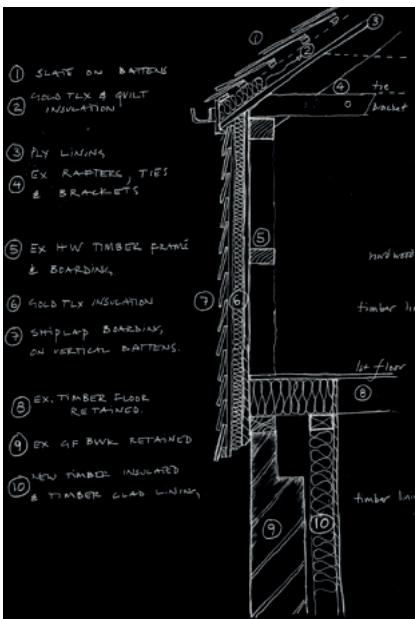 ① SLATE ON BATTENS
② GOLD TLX & QUILT
INSULATION
③ PLY LINING
④ EX RAFTERS, TIES
& BRACKETS
⑤ EX HW TIMBER FRAME
& BOARDING
⑥ GOLD TLX INSULATION
⑦ SHIPLAP BOARDING
ON VERTICAL BATTENS.
⑧ EX. TIMBER FLOOR
RETAINED.
⑨ EX GF BWK RETAINED
⑩ NEW TIMBER INSULATED
& TIMBER CLAD LINING
①
②
③
④
tie
bracket
⑤
hardwood
⑦ ⑥
timber li
1st floor
⑧
timber lini
⑨
⑩